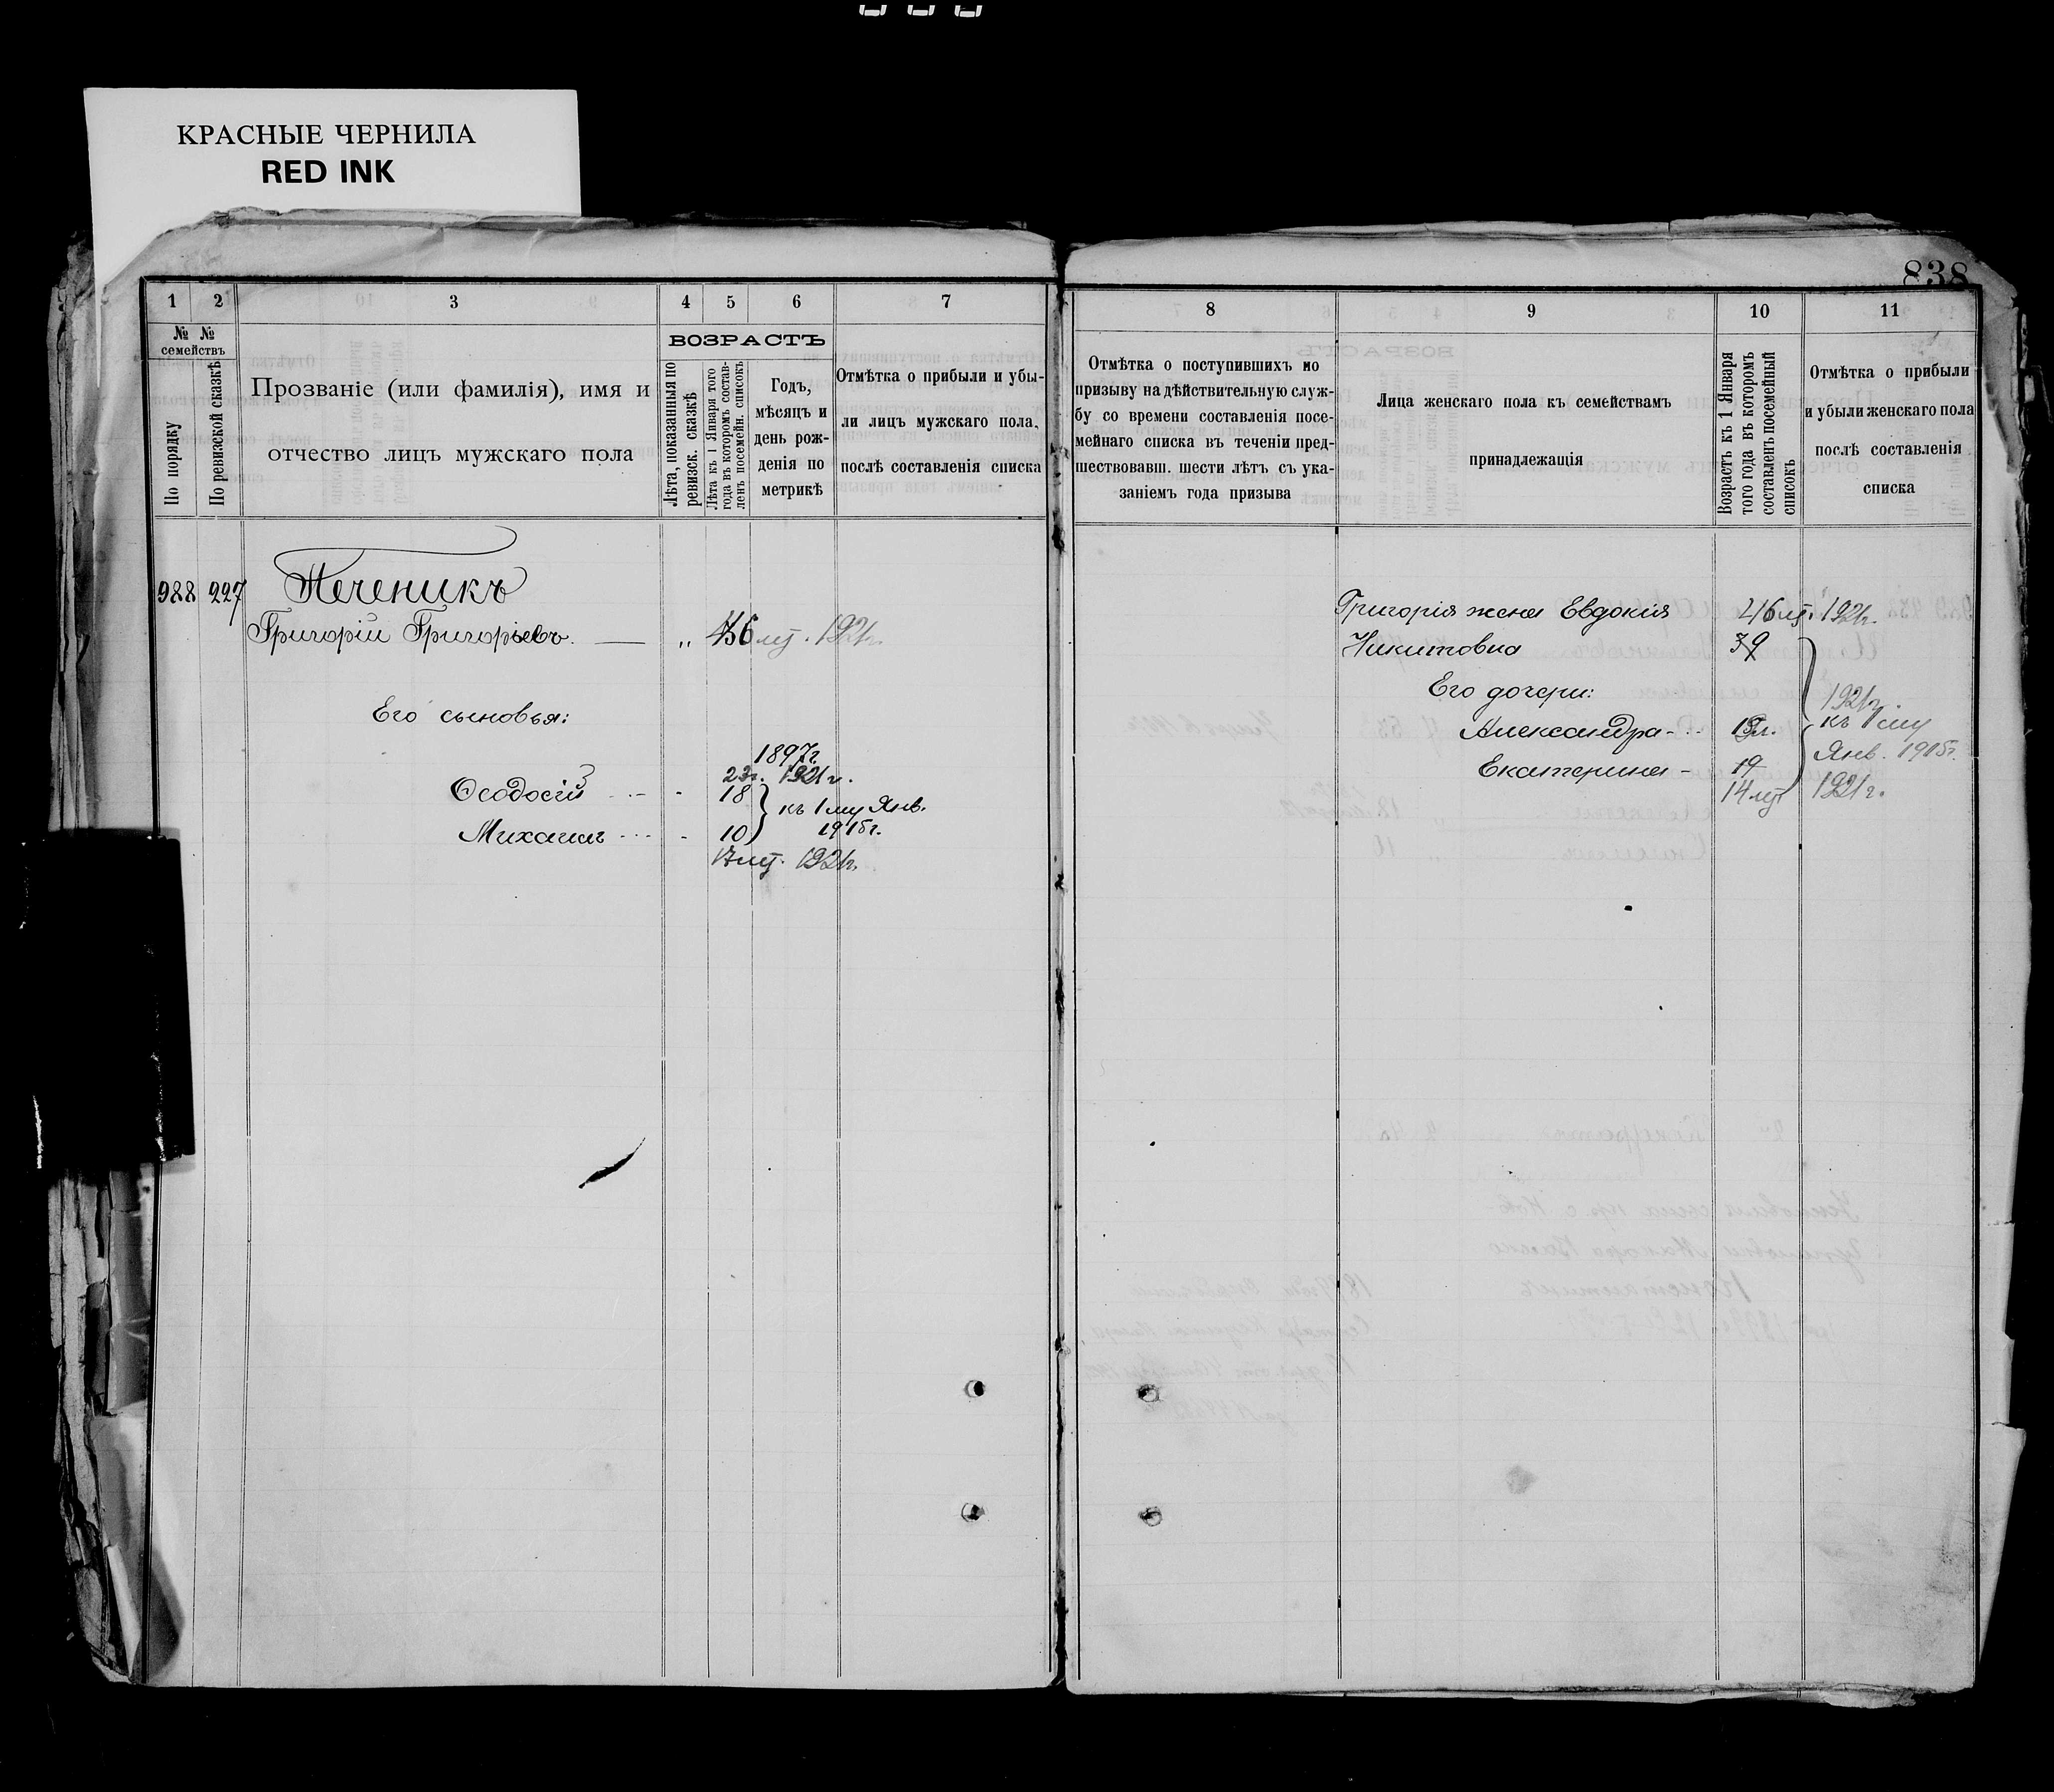 КРАСНЫЕ ЧЕРНИЛА
RED INK
838
1 2 3 4 5 6 7
№ № семействъ
По порядку
По ревизской сказкѣ
Прозваніе (или фамилія), имя и
отчество лицъ мужскаго пола
ВОЗРАСТЪ
Лѣта, показанныя по
ревизск. сказкѣ
Лѣта къ 1 Января того
года въ которомъ состав-
ленъ посемейн. списокъ
Годъ,
мѣсяцъ и
день рож-
денія по
метрикѣ
Отмѣтка о прибыли и убы-
ли лицъ мужскаго пола,
послѣ составленія списка
988 227 Печеникъ
Григорій Григорьевъ. — „ 1921г.
Его сыновья:
1897г.
23г. 1921г.
Ѳеодосій - 18
къ 1му Янв.
Михаилъ - 10 1915г.
17 лѣт. 1921г.
8 9 10 11
Отмѣтка о поступившихъ по
призыву на дѣйствительную служ-
бу со времени составленія посе-
мейнаго списка въ теченіи пред-
шествовавш. шести лѣтъ съ ука-
заніемъ года призыва
Лица женскаго пола къ семействамъ
принадлежащія
Возрастъ къ 1 Января
того года въ которомъ
составленъ посемейный
списокъ
Отмѣтка о прибыли
и убыли женскаго пола
послѣ составленія
списка
Григорія жена Евдокія 46 лѣт. 1921г.
Никитовна 39
Его дочери:
1921г.
Александра - къ 1му
Екатерина - Янв. 1915г.
14 лѣт 1921г.